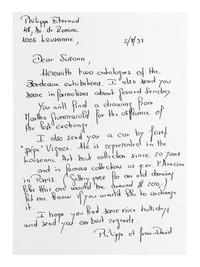 Philippe Eternod
48, Av. de Rumine
1005 Lausanne,
2/8/97
Dear Susann,
Herewith two catalogues of the
Bordeaux exhibitions. I also send you
some informations about Gérard Sendrey.
You will find a drawing from
Martha Grunenwaldt for the difference of
the last exchange.
I also send you a car by Josef
"pépé" Vignes. He is represented in the
Lausanne Art Brut collection since 20 years
and in famous collections as p.ex. l'Aracine
in Paris. (Selling price for an old drawing
like this one would be around $ 200,)
Let me know if you would like to exchange
it.
I hope you had some nice holidays,
and send you our best regards.
Philippe et Jean-David